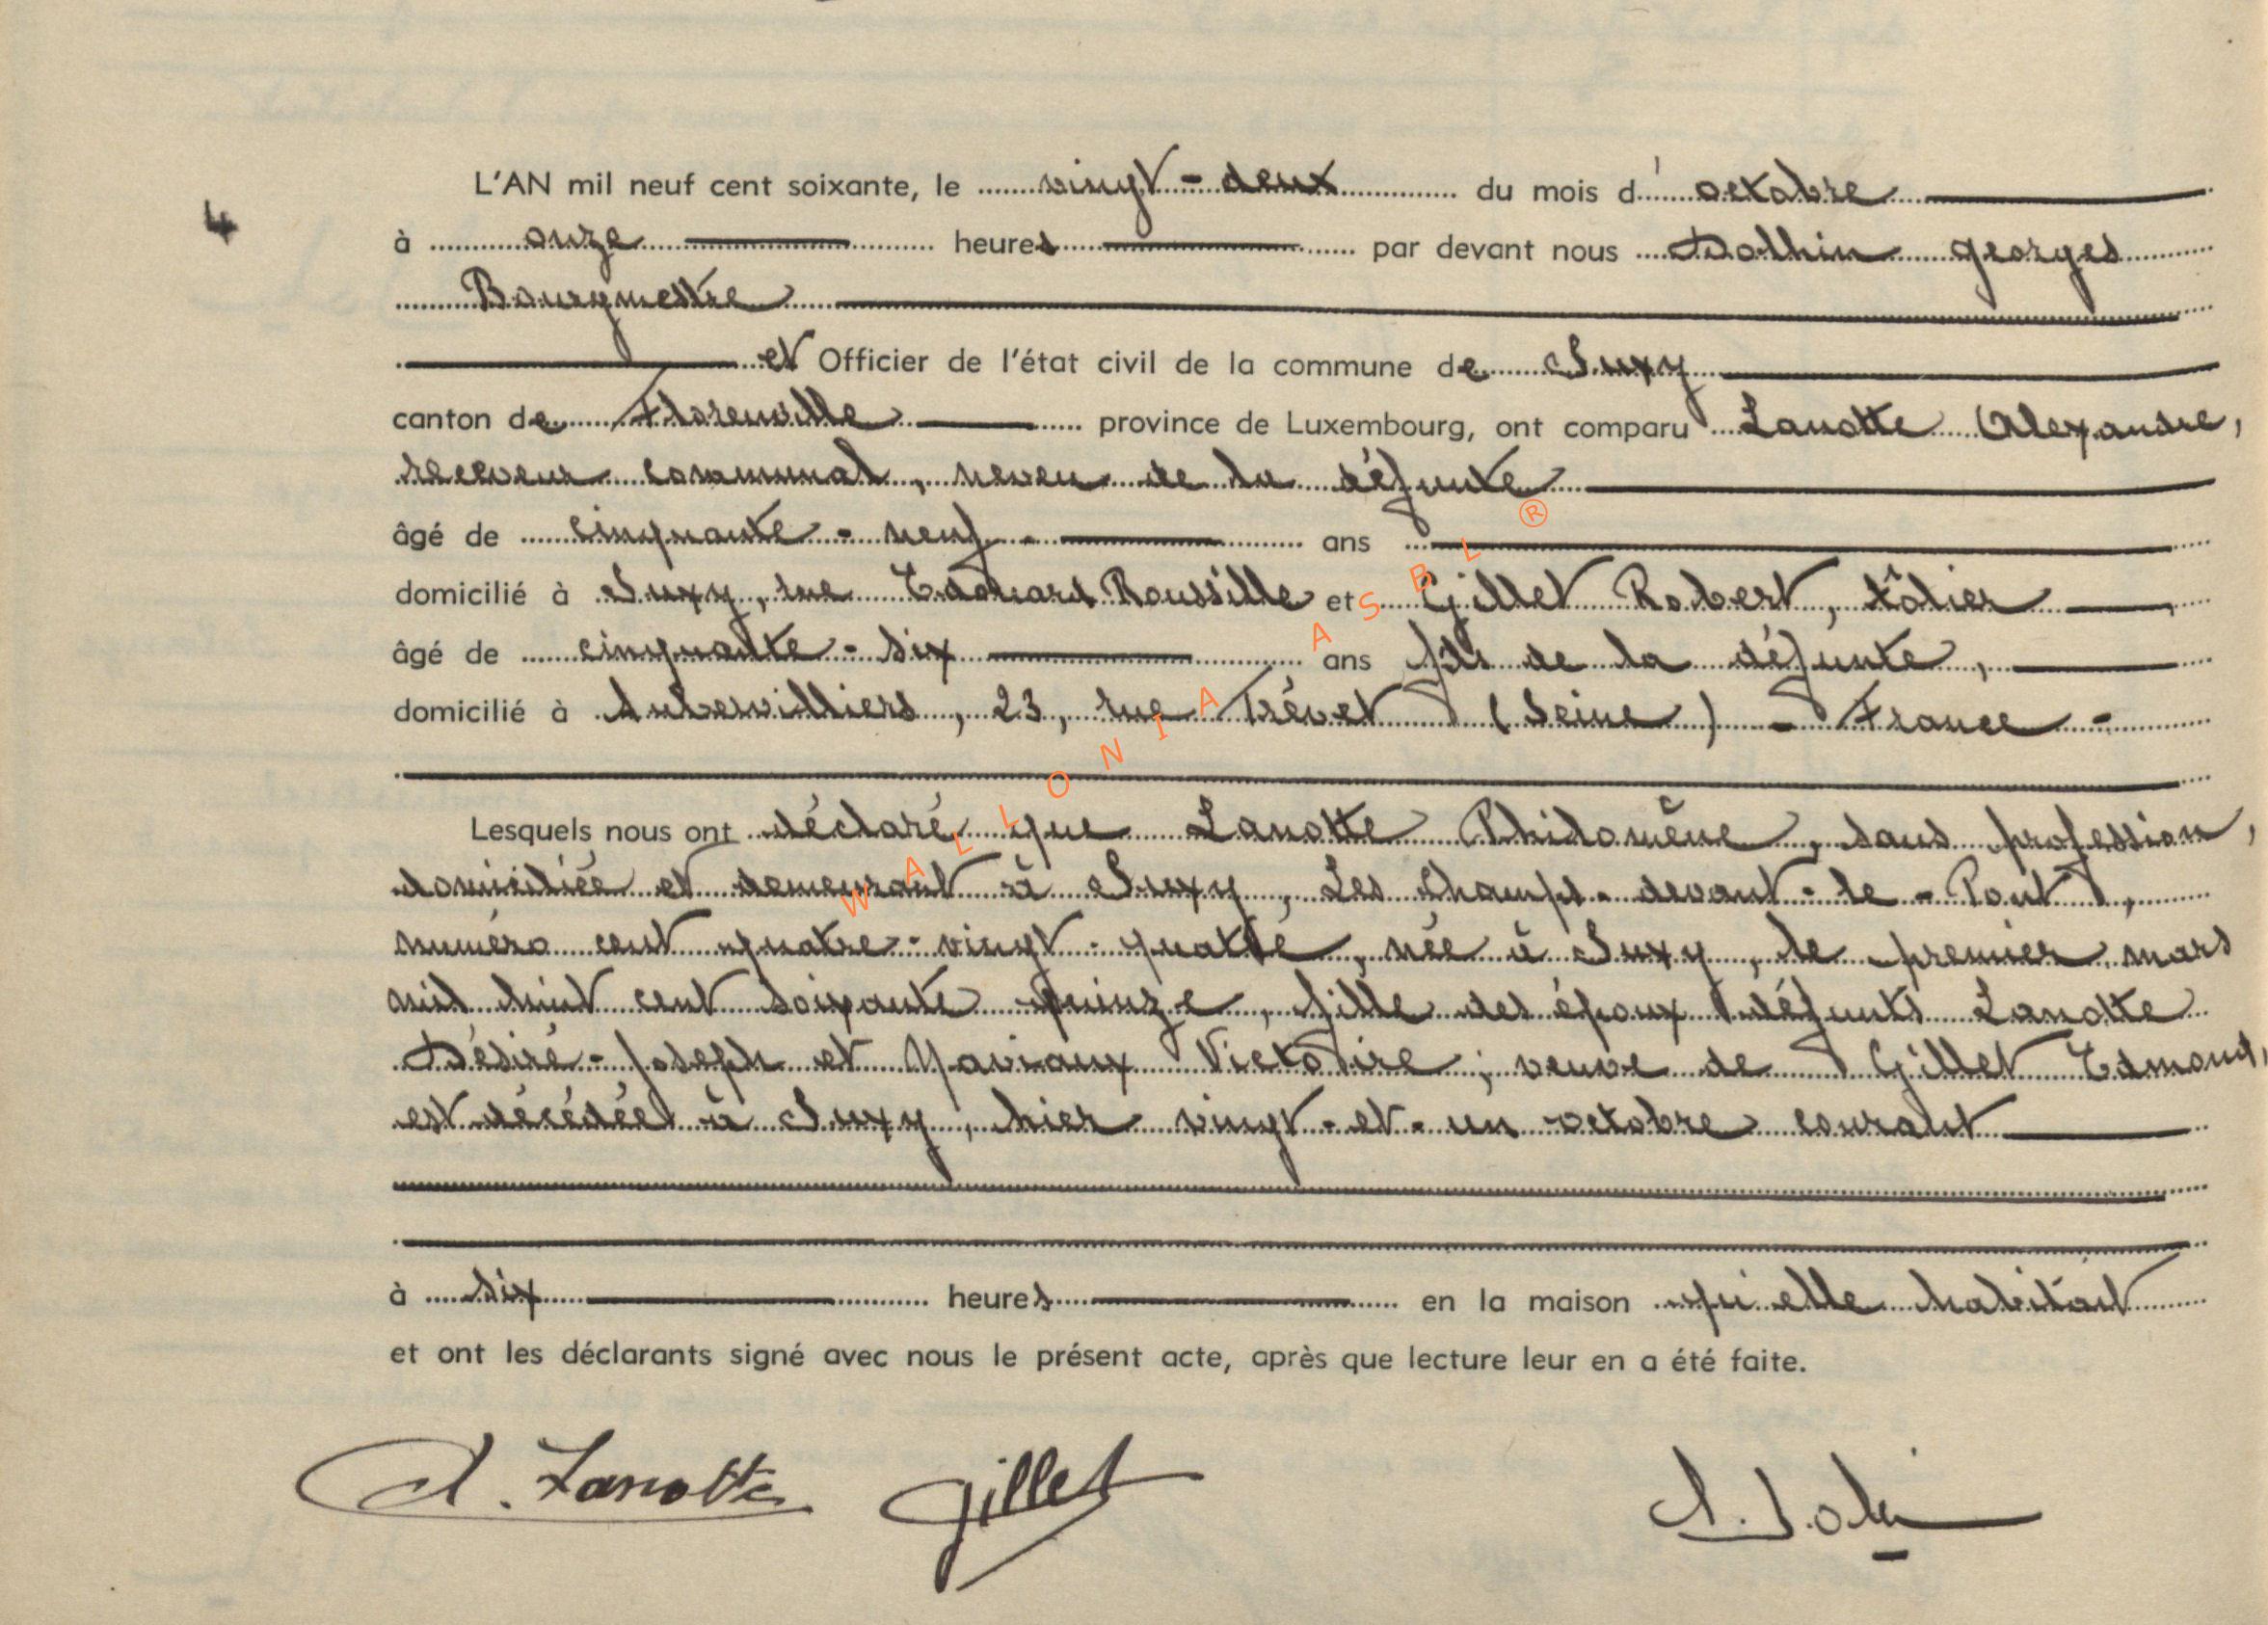 4
L'AN mil neuf cent soixante, le vingt-deux du mois d' octobre
à onze heures par devant nous Dolhin Georges
Bourgmestre
et Officier de l'état civil de la commune de Suxy
canton de Florenville province de Luxembourg, ont comparu Lanotte Alexandre,
receveur communal, neveu de la défunte
âgé de cinquante-neuf ans
domicilié à Suxy, rue Edouard Roussille et Gillet Robert, tôlier,
âgé de cinquante-six ans fils de la défunte,
domicilié à Aubervilliers, 23, rue Trévet (Seine) - France -
Lesquels nous ont déclaré que Lanotte Philomène, sans profession,
domiciliée et demeurant à Suxy, Les Champs-devant-le-Pont,
numéro cent quatre-vingt-quatre, née à Suxy, le premier mars
mil huit cent soixante quinze, fille des époux défunts Lanotte
Désiré-Joseph et Maviaux Victoire; veuve de Gillet Edmond,
est décédée à Suxy, hier vingt-et-un octobre courant
à six heures en la maison qu'elle habitait
et ont les déclarants signé avec nous le présent acte, après que lecture leur en a été faite.
A. Lanotte Gillet
WALLONIA ASBL ®